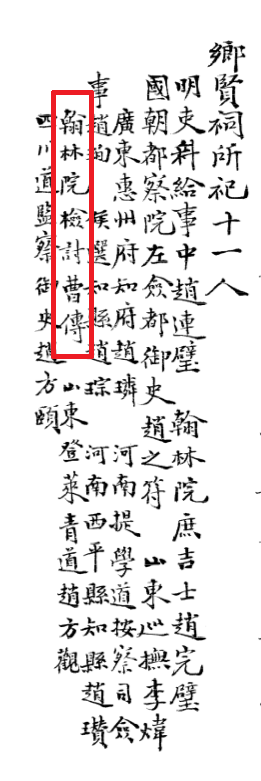 鄉賢祠所祀十一人
明吏科給事中趙連璧 翰林院庶吉士趙完璧
國朝都察院左僉都御史趙之符 山東巡撫李煒
廣東惠州府知府趙璘 河南提學道按察司僉
事趙珣 候選知縣趙琮 河南西平縣知縣趙瓚
翰林院檢討曹傳 山東登萊青道趙方觀
四川道監察御史趙方頤